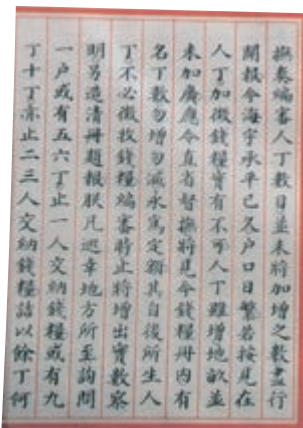 撫奏編審人丁數目並未將加增之數盡行
開報今海宇承平已久戶口日繁若按見在
人丁加徵錢糧實有不可人丁雖增地畝並
未加廣應令直省督撫將見今錢糧冊內有
名丁數勿增勿減永為定額其自後所生人
丁不必徵收錢糧編審時止將增出實數察
明另造清冊題報朕凡巡幸地方所至詢問
一戶或有五六丁止一人交納錢糧或有九
丁十丁亦止二三人交納錢糧詰以餘丁何